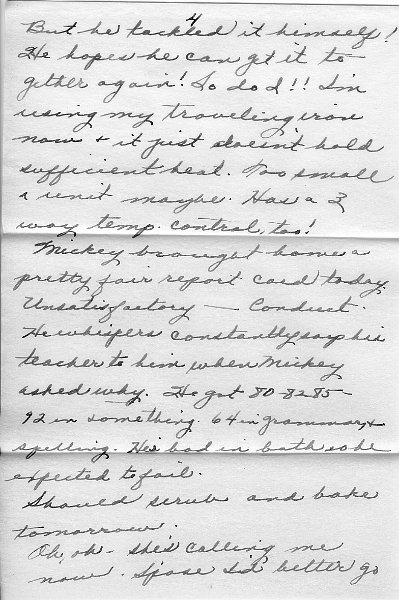 4
But he tackled it himself!
He hopes he can get it to-
gether again! So do I!! I'm
using my traveling iron
now + it just doesn't hold
sufficient heat. Too small
a unit maybe. Has a 3
way temp. control, too!
Mickey brought home a
pretty fair report card today.
Unsatisfactory — Conduct
He whispers constantly say his
teacher to him when Mickey
asked why. He got 80-82-85-
92 in something. 64 in grammar, +
spelling. He's bad in both so he
expected to fail.
Should scrub and bake
tomorrow.
Oh, oh - she's calling me
now. S'pose I'd better go